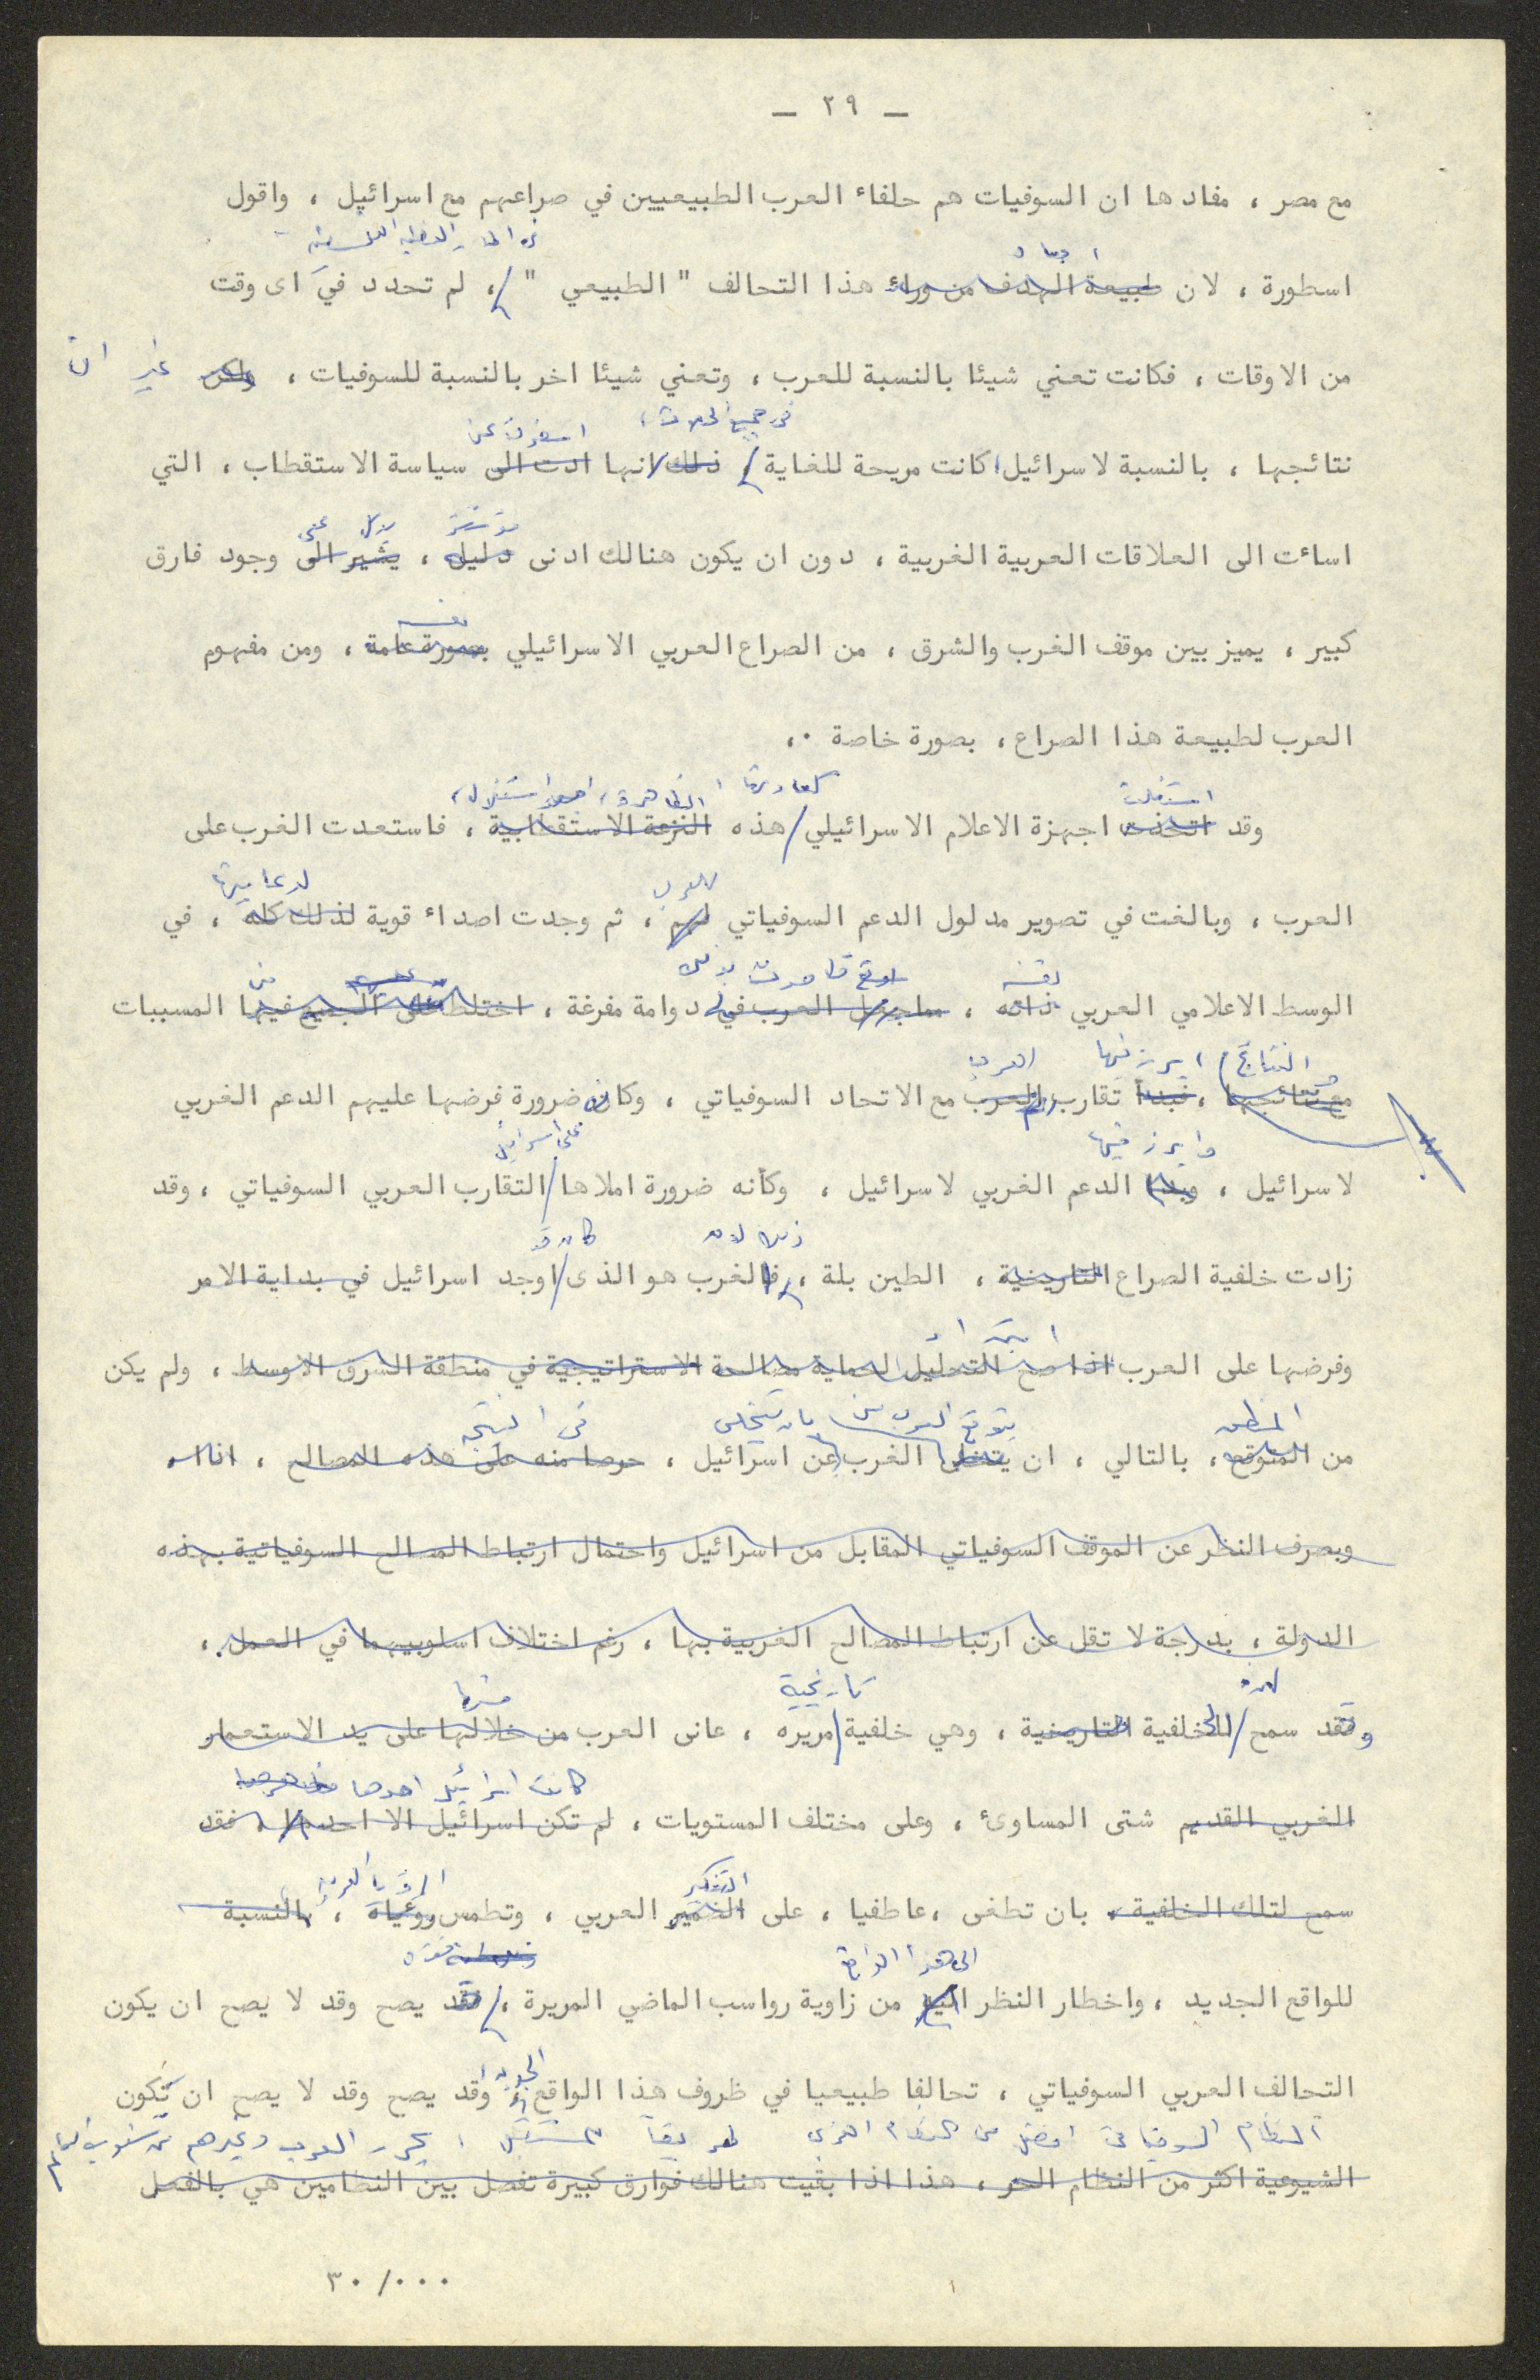 — ٢٩ —
مع مصر ، مفادها ان السوفيات هم حلفاء العرب الطبيعيين في صراعهم مع اسرائيل ، واقول
اسطورة ، لان طبيعة الهدف من وراء هذا التحالف " الطبيعي " ، لم تحدد في اى وقت
غير ان
من الاوقات ، فكانت تعني شيئا بالنسبة للعرب ، وتعني شيئا اخر بالنسبة للسوفيات ، ولكن
في جميع الحالات ،
اسفرت عن
نتائجها ، بالنسبة لاسرائيل كانت مريحة للغاية ، ذلك انها ادت الى سياسة الاستقطاب ، التي
يدل على
اسائت الى العلاقات العربية الغربية ، دون ان يكون هنالك ادنى دليل ، يشير الى وجود فارق
نفسه
كبير ، يميز بين موقف الغرب والشرق ، من الصراع العربي الاسرائيلي بصورة عامة ، ومن مفهوم
العرب لطبيعة هذا الصراع ، بصورة خاصة ٠،
استغلت
كعادتها ، الظاهرة ، استغلال ،
وقد اتخذت اجهزة الاعلام الاسرائيلي هذه النزعة الاستقطابية ، فاستعدت الغرب على
للعرب
لدعايتها
العرب ، وبالغت في تصوير مدلول الدعم السوفياتي لهم ، ثم وجدت اصداء قوية لذلك كله ، في
نفسه
بذلك
الوسط الاعلامي العربي ذاته ، مما جعل العرب في دوامة مفرغة ، اختلط على الجميع فيها المسببات
النتائج ، ابرز فيها
العرب
مع نتائجها ، فبدأ تقارب العرب مع الاتحاد السوفياتي ، وكانه ضرورة فرضها عليهم الدعم الغربي
وابرز فيها
على اسرائيل
لاسرائيل ، وبدا الدعم الغربي لاسرائيل ، وكأنه ضرورة املاها التقارب العربي السوفياتي ، وقد
ذلك لان
كان قد
زادت خلفية الصراع التاريخية ، الطين بلة ، فالغرب هو الذى اوجد اسرائيل في بداية الامر
ابتداء
وفرضها على العرب اذا صح التحليل لحماية مصالحة الاستراتيجية في منطقة الشرق الاوسط ، ولم يكن
المنطق
يتوقع العرب من
بان يتخلى
في النتيجة
من المتوقع ، بالتالي ، ان يتخلى الغرب عن اسرائيل ، حرصا منه على هذه المصالح ، اذا
وبصرف النظر عن الموقف السوفياتي المقابل من اسرائيل واحتمال ارتباط المصالح السوفياتية بهذه
الدولة ، بدرجة لا تقل عن ارتباط المصالح الغربية بها ، رغم اختلاف اسلوبيهما في العمل ،
لهذه
تاريخية
منها
وقد سمح للخلفية التاريخية ، وهي خلفية مريره ، عانى العرب من خلالها على يد الاستعمار
كانت اسرائيل احدها
الغربي القديم شتى المساوئ ، وعلى مختلف المستويات ، لم تكن اسرائيل الا احدها ، فقد
التفكير
الرؤيا العربية
سمح لتلك الخلفية ، بان تطغى ، عاطفيا ، على الضمير العربي ، وتطمس رؤياه ، بالنسبة
الى هذا الواقع
للواقع الجديد ، واخطار النظر اليه من زاوية رواسب الماضي المريرة ، فقد يصح وقد لا يصح ان يكون
الجديد ،
التحالف العربي السوفياتي ، تحالفا طبيعيا في ظروف هذا الواقع ، وقد يصح وقد لا يصح ان تكون
النظام السوفياتي افضل من النظام الغربي طريقا للمستقبل ، يحرر العرب وغيرهم من شعوب العالم
الشيوعية اكثر من النظام الحر ، هذا اذا بقيت هنالك فوارق كبيرة تفصل بين النظامين هي بالفعل
٣٠/٠٠٠